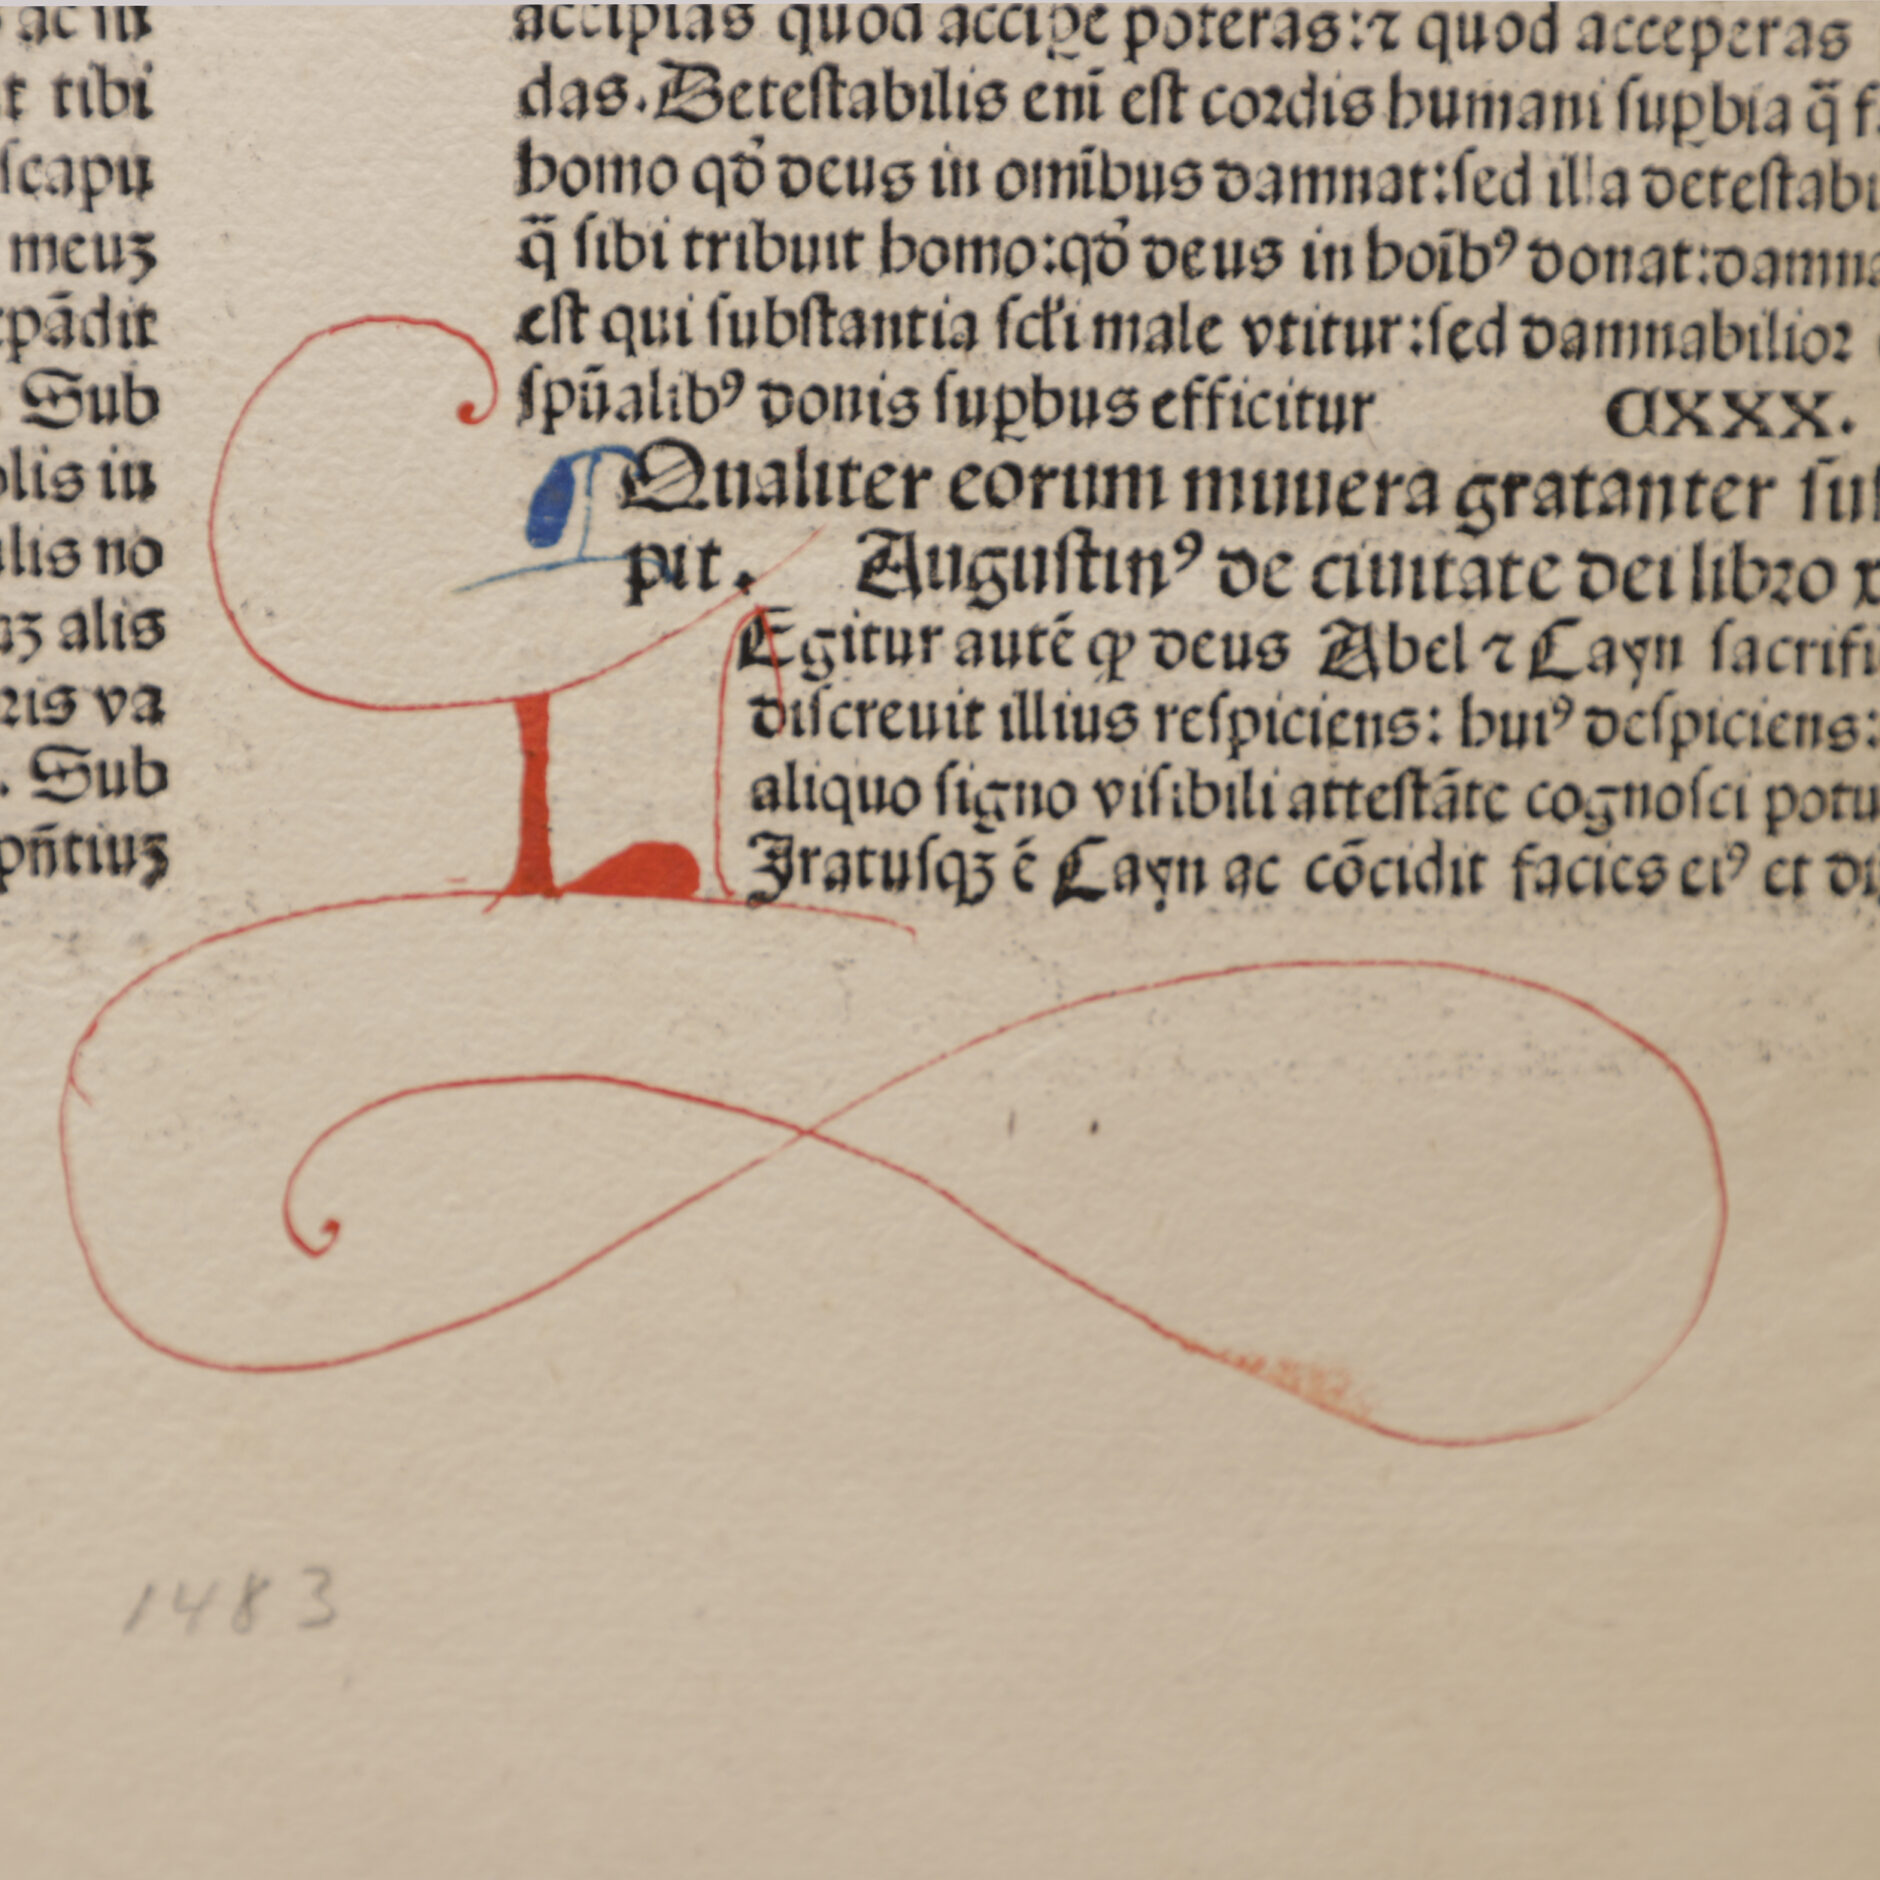 ac in
t tibi
ſcapu
meuʒ
rpādit
. Sub
olis in
ulis no
aʒ alis
ꝛis va
. Sub
pn̄tiuʒ
accipias quod accip̲e poteras:⁊ quod acceperas
das. Deteſtabilis enī eſt coꝛdis humani ſuꝑbia q̄ f
homo qđ deus in omībus damnat:ſed illa deteſtabi
q̄ ſibi tribuit homo:qđ deus in hoībꝰ donat:damna
eſt qui ſubſtantia ſcl̓i male vtitur:ſed damnabilioꝛ
ſpūalibꝰ donis ſuꝑbus efficitur CXXX.
Qualiter eorum munera gratanter ſuſ
pit. Auguſtinꝰ de ciuitate dei libꝛo x
L Egitur autē ꝙ deus Abel ⁊ Cayn ſacrifi
diſcreuit illius reſpiciens: huiꝰ deſpiciens:
aliquo ſigno viſibili atteſtāte cognoſci potu
Iratuſqʒ ē Cayn ac cōcidit facies eiꝰ et di
1483